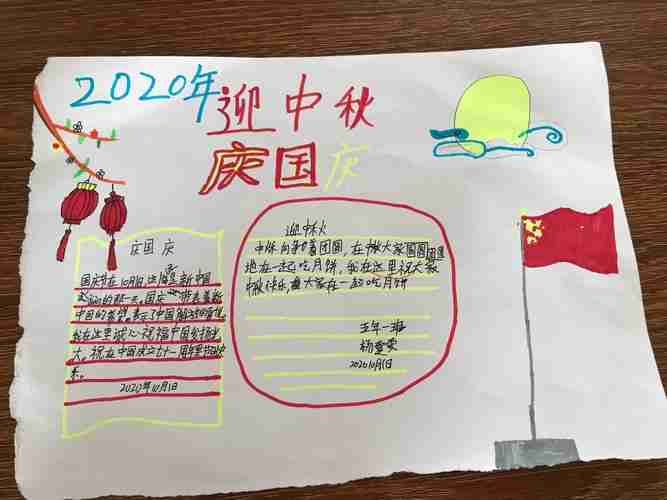 2020年
迎中秋
庆国庆
庆国庆
国庆节在10月1日,这是新中国
的那一天。国庆
中国的希望。表示了中国
在这里诚心祝福中国发扬光
大。祝在中国成立七十一周年里节日快
乐。
2020年10月1日
迎中秋
中秋向着团圆,在中秋大家团圆
地在一起吃月饼,我在这里祝大家
中秋快乐,大家在一起吃月饼
五年一班
杨
2020.10月1日